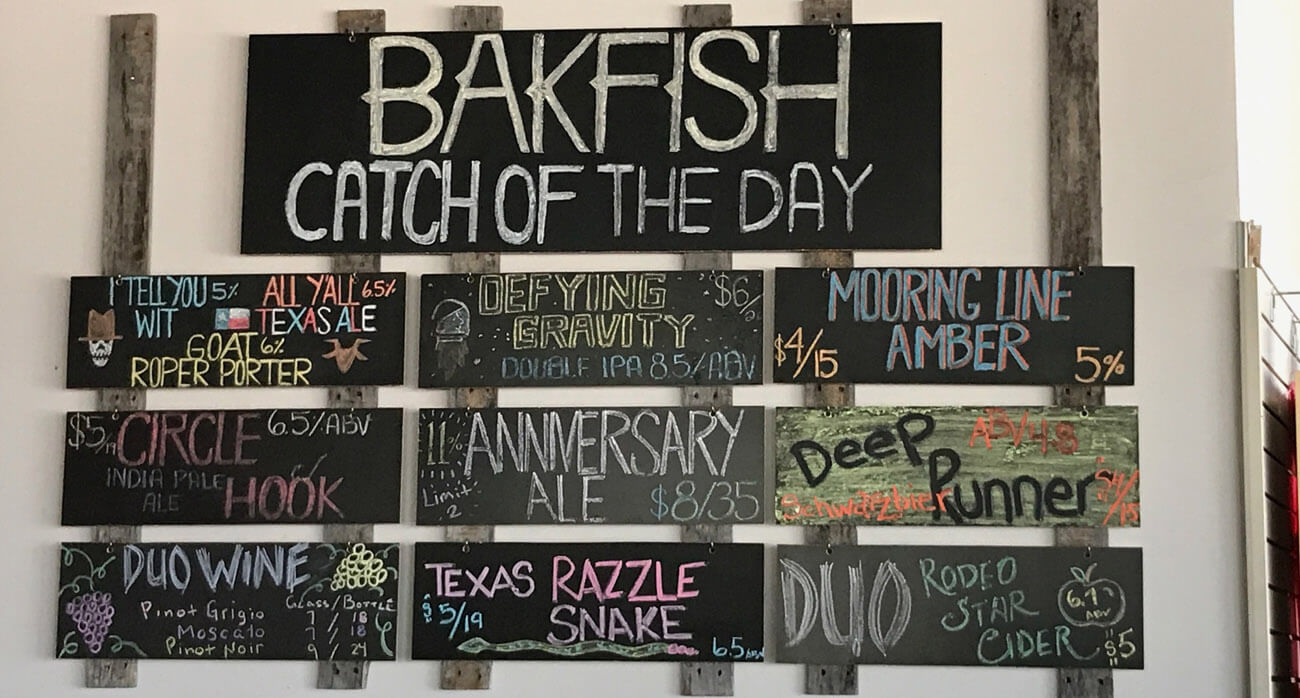 BAKFISH
CATCH OF THE DAY
I TELL YOU 5%
WIT
ALL Y'ALL 6.5%
TEXAS ALE
GOAT 6%
ROPER PORTER
DEFYING $6/
GRAVITY
DOUBLE IPA 8.5% ABV
MOORING LINE
AMBER
$4/15
5%
$5/ CIRCLE 6.5% ABV
INDIA PALE
ALE
HOOK
11% ANNIVERSARY
ALE
Limit
2
$8/35
Deep ABV 4.8
Runner $4/15
Schwarzbier
DUO WINE
Glass/Bottle
Pinot Grigio 7 / 18
Moscato 7 / 18
Pinot Noir 9 / 24
TEXAS RAZZLE
SNAKE
$5/19
6.5 ABV
DUO RODEO
STAR
CIDER
6.9
ABV
$5